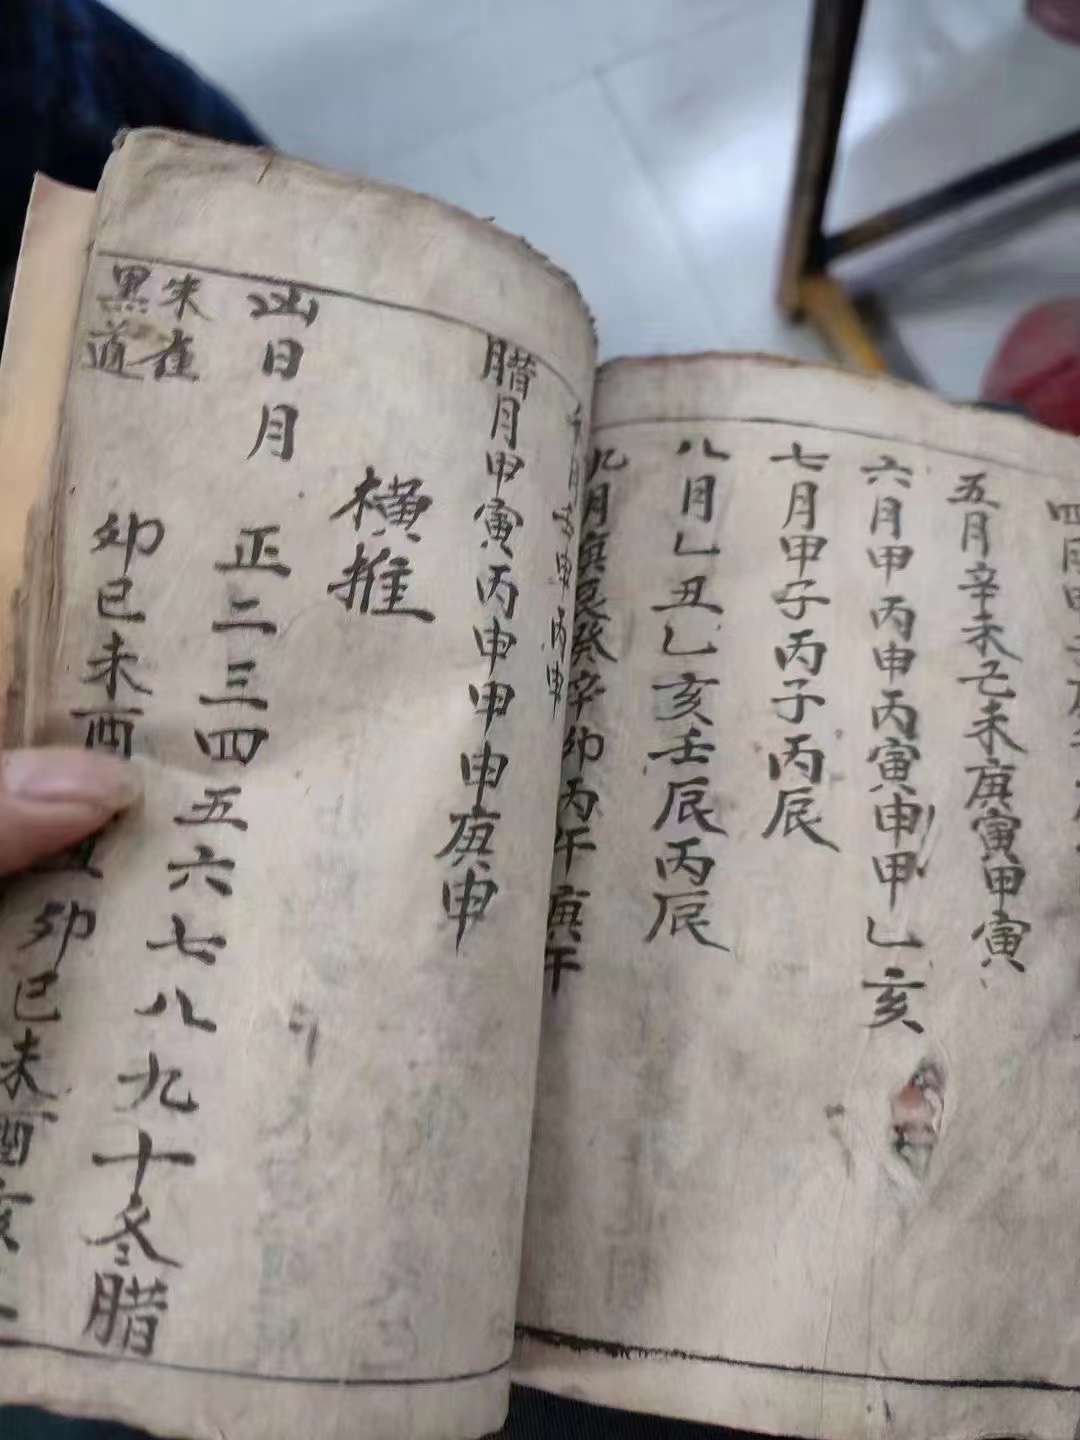 五月辛未己未庚寅甲寅
六月甲丙申丙寅申甲乙亥
七月甲子丙子丙辰
八月乙丑乙亥壬辰丙辰
九月庚辰癸辛卯丙午庚午
腊月甲寅丙申甲申庚申
横推
凶日月 正二三四五六七八九十冬腊
朱雀
黑道
卯巳未酉
卯巳未酉亥